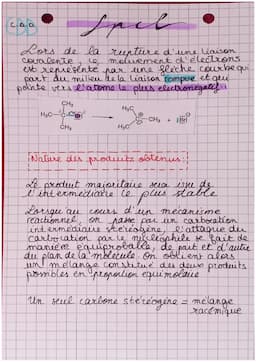 Spcl
Lors de la rupture d'une liaison
covalente, le mouvement d'électrons
est représenté par une flèche courbe qui
part du milieu de la liaison rompue et qui
pointe vers l'atome le plus électronégatif
CH₃
H₃C
CH₃
CH₃
H₃C
CH₃
+
Nature des produits obtenus :
Le produit majoritaire sera issu de
l'intermédiaire le plus stable
Lorsqu'au cours d'un mécanisme
réactionnel, on passe par un carbocation
intermédiaire stéréogène, l'attaque du
carbocation par le nucléophile se fait de
manière équiprobable, de part et d'autre
du plan de la molécule. On obtient alors
un mélange constitué des deux produits
possibles en proportion équimolaire
Un seul carbone stéréogène = mélange
racémique